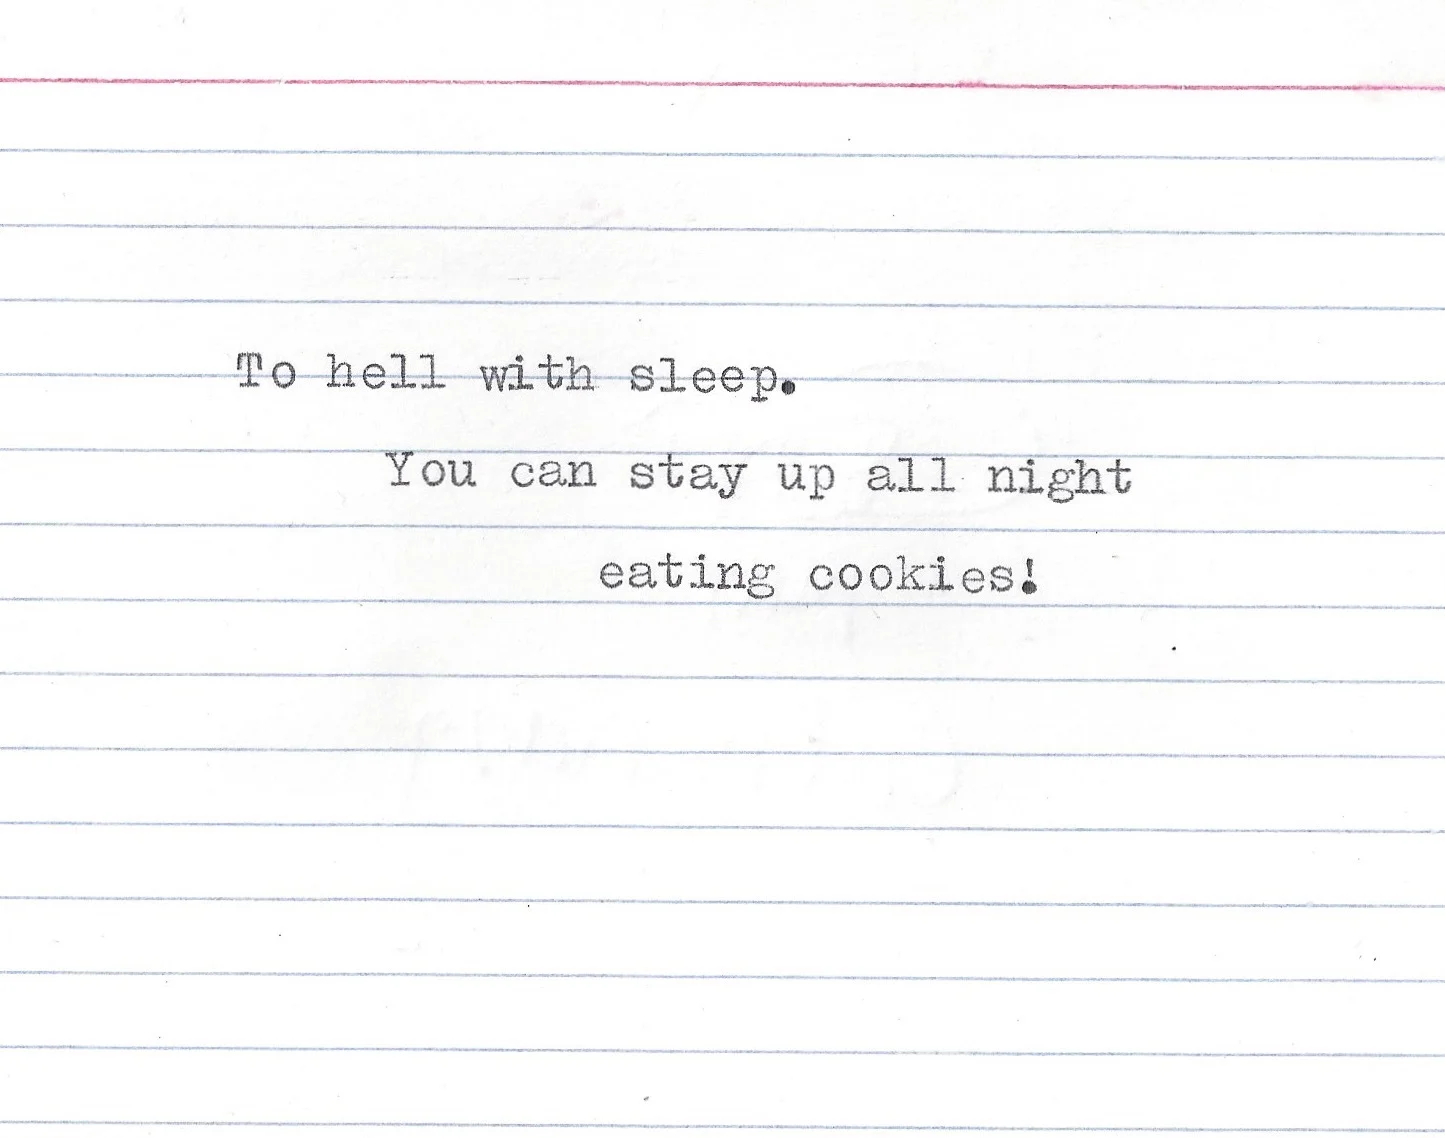 To hell with sleep.
You can stay up all night
eating cookies!